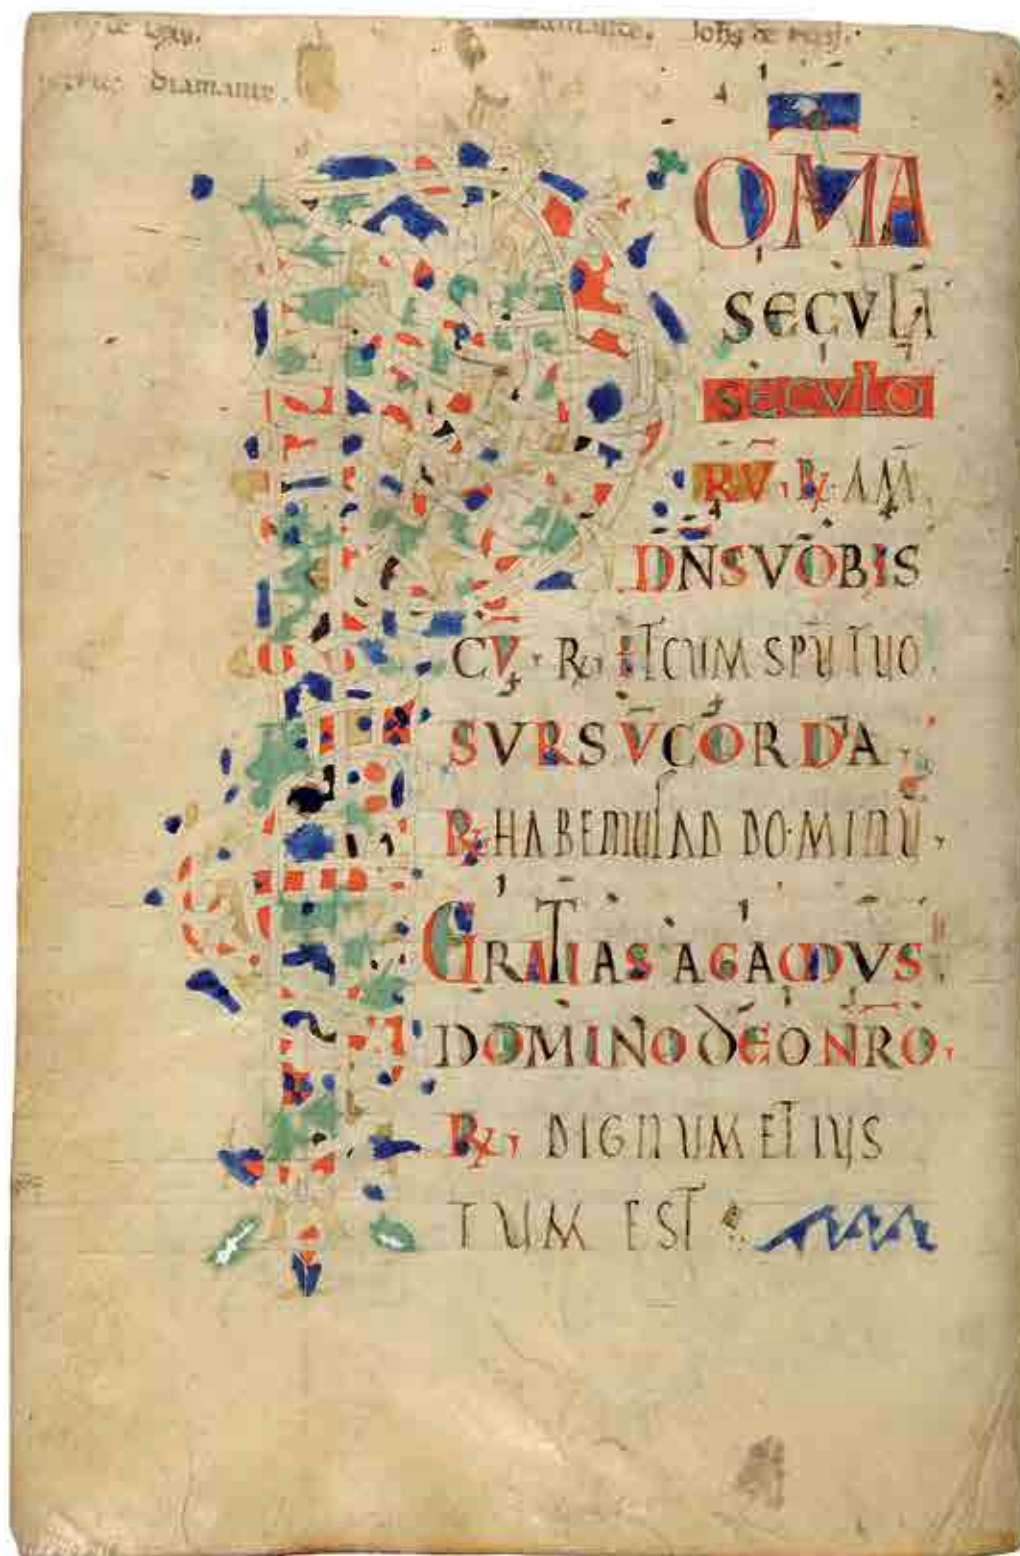 diamante.
P OM̄A
SECVLA
SECVLO
RV̄, ℞ AM̄
DN̄SVOBIS
CV̄, ℞, ETCUM SPŪ TUO.
SVRSV̄CORDA
℞ HABEMUSAD DOMINŪ.
GRATIAS AGAMVS
DOMINO DEO NR̄O.
℞, DIGNUM ET IUS
TUM EST